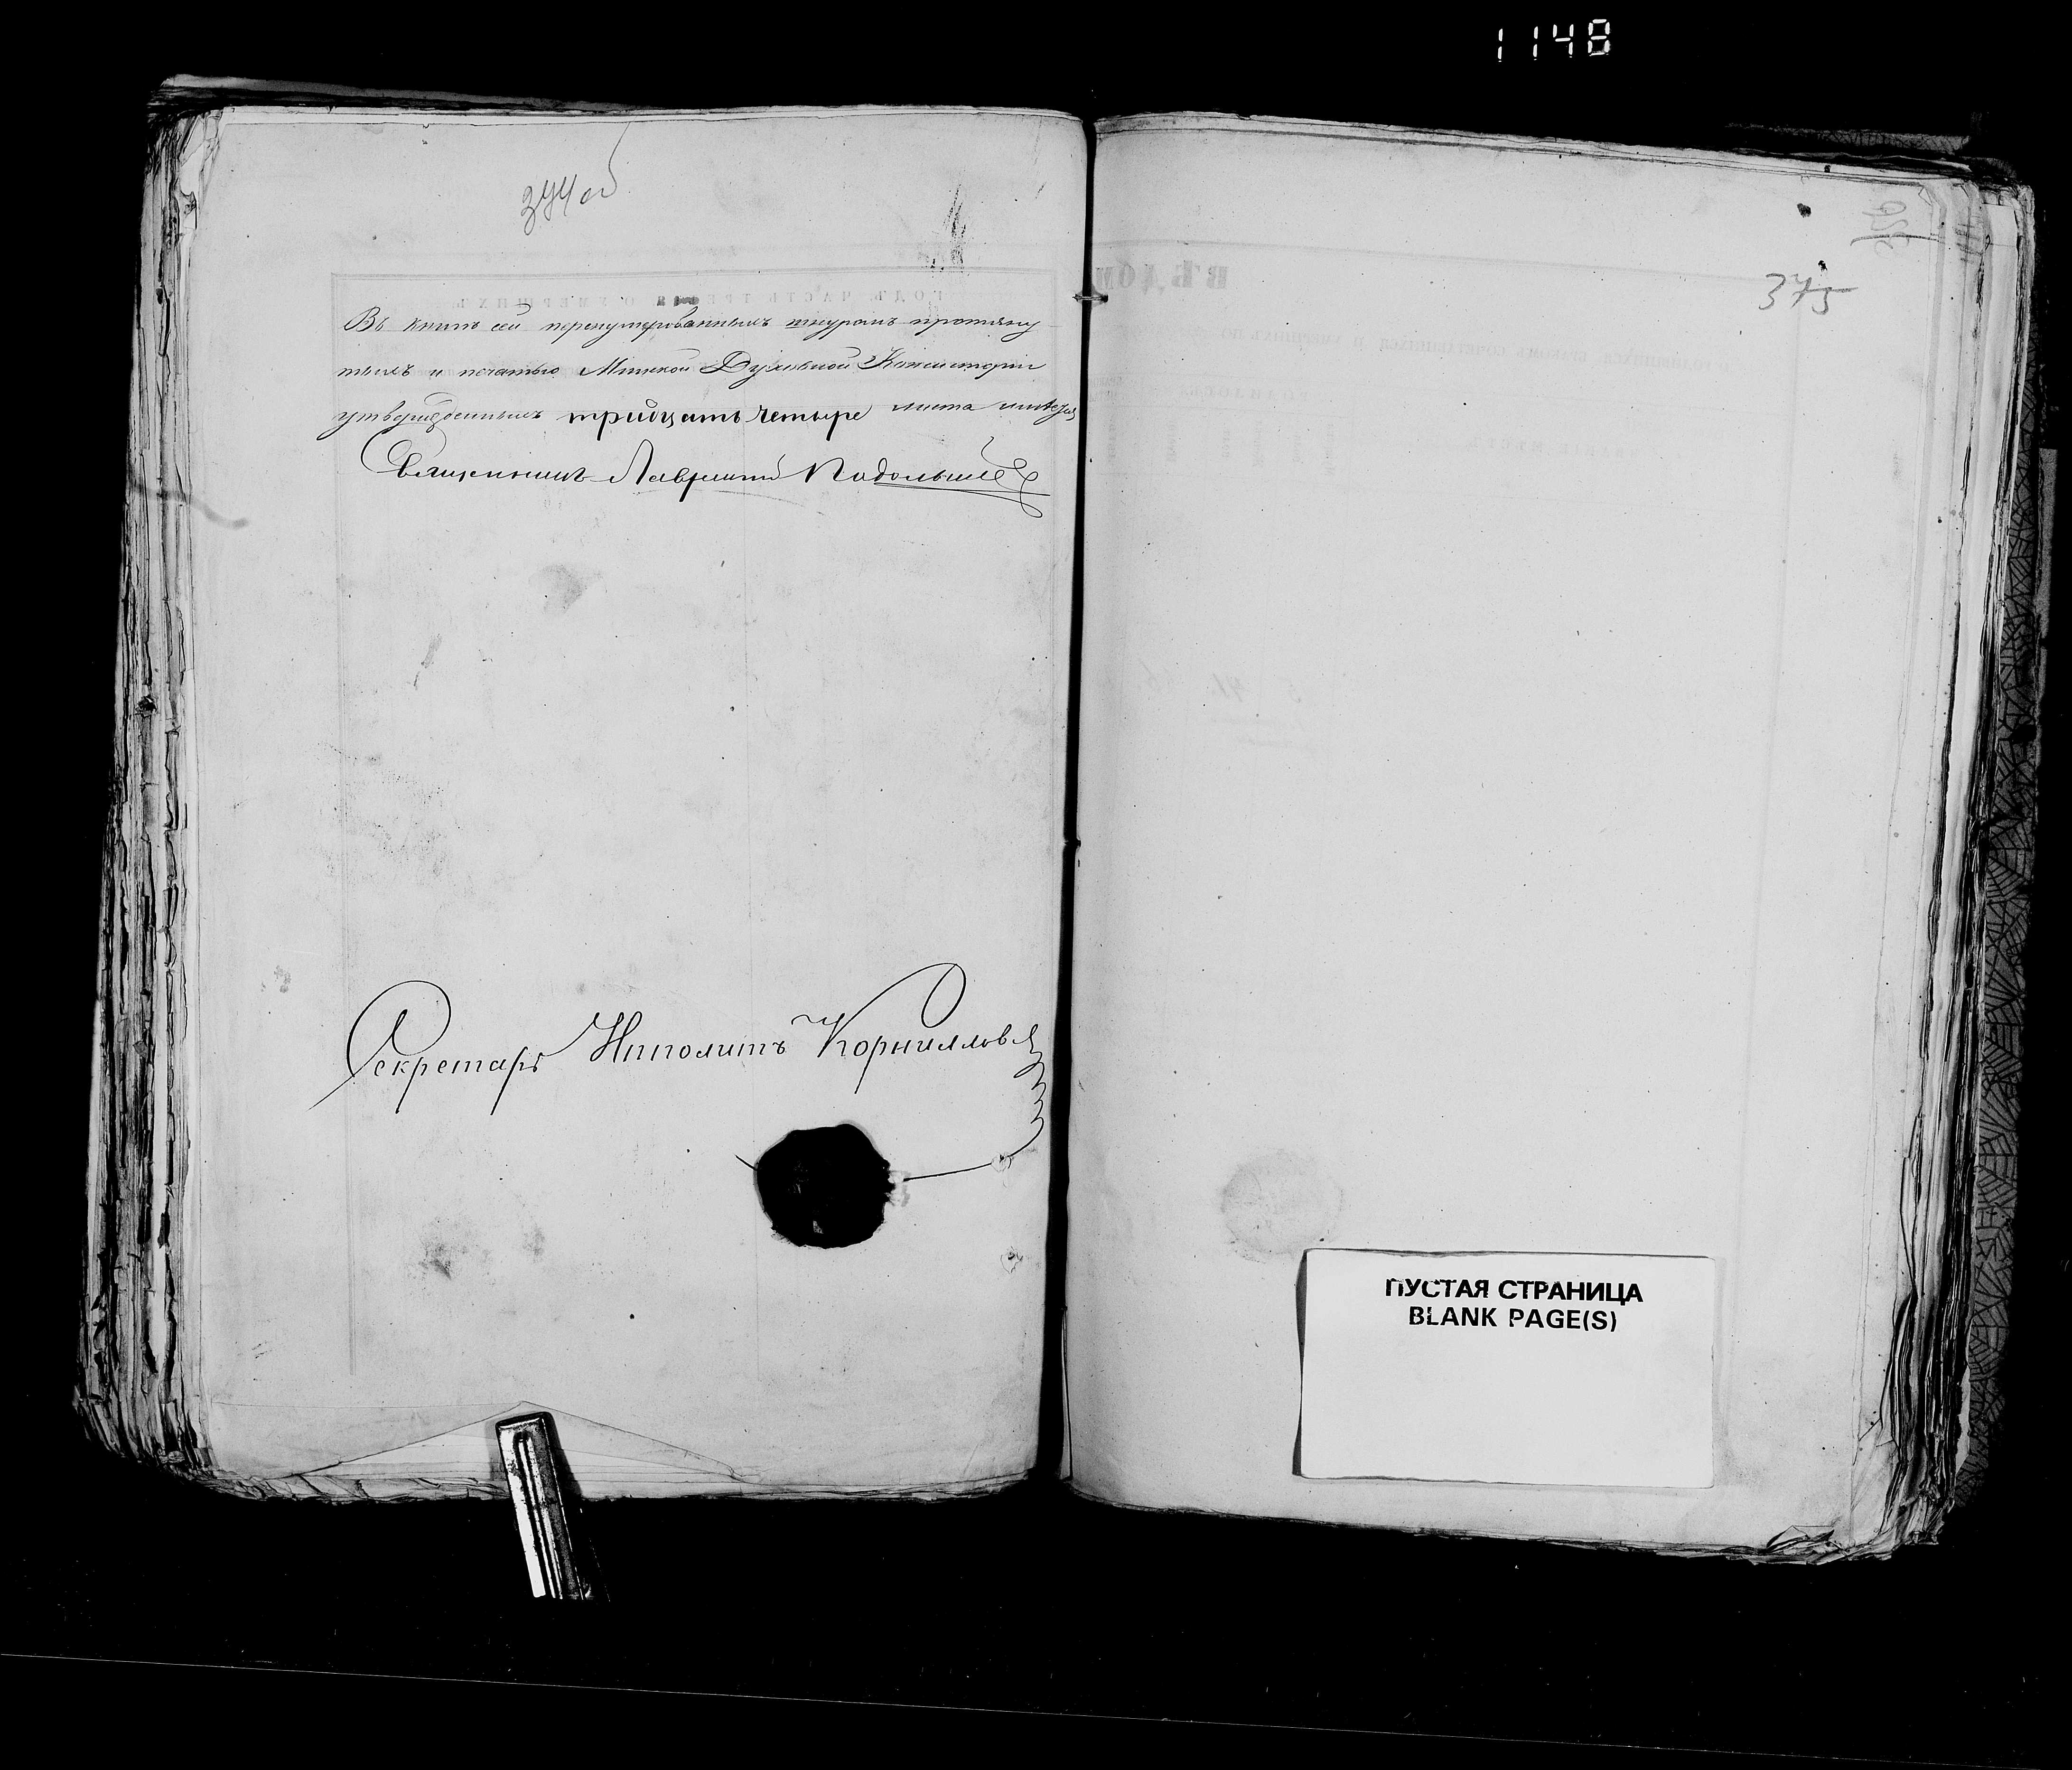 1148
374 об
Въ книгѣ сей перенумерованныхъ шнуромъ протяну-
тыхъ и печатью Минской Духовной Консисторіи
утвержденныхъ тридцать четыре листа имѣется
Священникъ Лаврентій Подольшей
Секретарь Ипполитъ Корниллов
375
ПУСТАЯ СТРАНИЦА
BLANK PAGE(S)